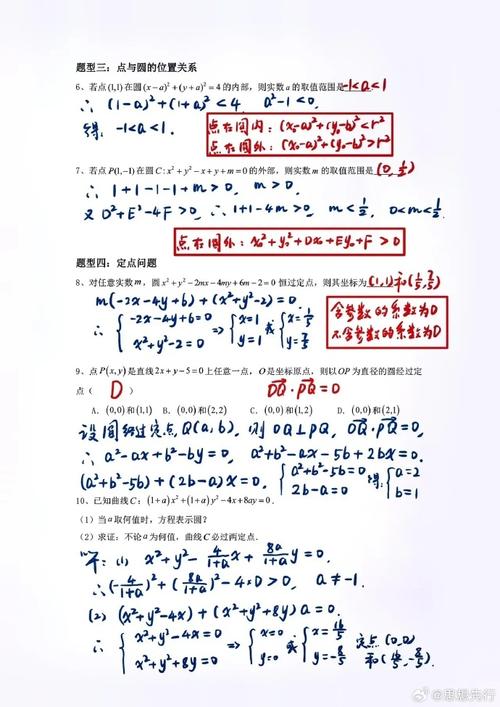 题型三：点与圆的位置关系
6、若点(1,1)在圆(x-a)²+(y+a)²=4的内部，则实数a的取值范围是 -1<a<1
∴ (1-a)²+(1+a)²<4 a²-1<0.
得: -1<a<1.
点在圆内: (x₀-a)²+(y₀-b)²<r²
点在圆外: (x₀-a)²+(y₀-b)²>r²
7、若点P(1,-1)在圆C:x²+y²-x+y+m=0的外部，则实数m的取值范围是 (0,1/2)
∴ 1+1-1-1+m>0, m>0.
又D²+E²-4F>0, ∴ 1+1-4m>0, m<1/2, 0<m<1/2.
点在圆外: x₀²+y₀²+Dx₀+Ey₀+F>0
题型四：定点问题
8、对任意实数m，圆x²+y²-2mx-4my+6m-2=0恒过定点，则其坐标为 (1,1)和(1/5,7/5)
m(-2x-4y+6)+(x²+y²-2)=0.
∴ { -2x-4y+6=0 x²+y²-2=0 ⇒ { x=1 y=1 或 { x=1/5 y=7/5
含参数的系数为0
不含参数的系数为0
9、点P(x,y)是直线2x+y-5=0上任意一点，O是坐标原点，则以OP为直径的圆经过定
点（ D ） OQ·PQ=0
A．(0,0)和(1,1) B．(0,0)和(2,2) C．(0,0)和(1,2) D．(0,0)和(2,1)
设圆经过定点Q(a,b), 则OQ⊥PQ, OQ·PQ=0,
∴ a²-ax+b²-by=0. a²+b²-ax-5b+2bx=0.
(a²+b²-5b)+(2b-a)x=0. { a²+b²-5b=0 2b-a=0 得: { a=2 b=1
10、已知曲线C：(1+a)x²+(1+a)y²-4x+8ay=0．
（1）当a取何值时，方程表示圆？
（2）求证：不论a为何值，曲线C必过两定点．
解: (1) x²+y²-4/(1+a)x+8a/(1+a)y=0.
∴(-4/(1+a))²+(8a/(1+a))²-4×0>0, a≠-1.
(2) (x²+y²-4x)+(x²+y²+8y)a=0.
∴ { x²+y²-4x=0 x²+y²+8y=0 ⇒ { x=0 y=0 或 { x=16/5 y=-8/5 定点(0,0) 和(16/5,-8/5).
@思想先行